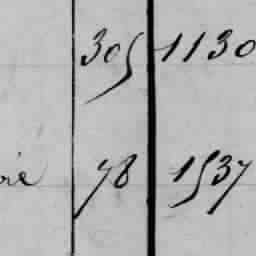 305 1130
78 1537